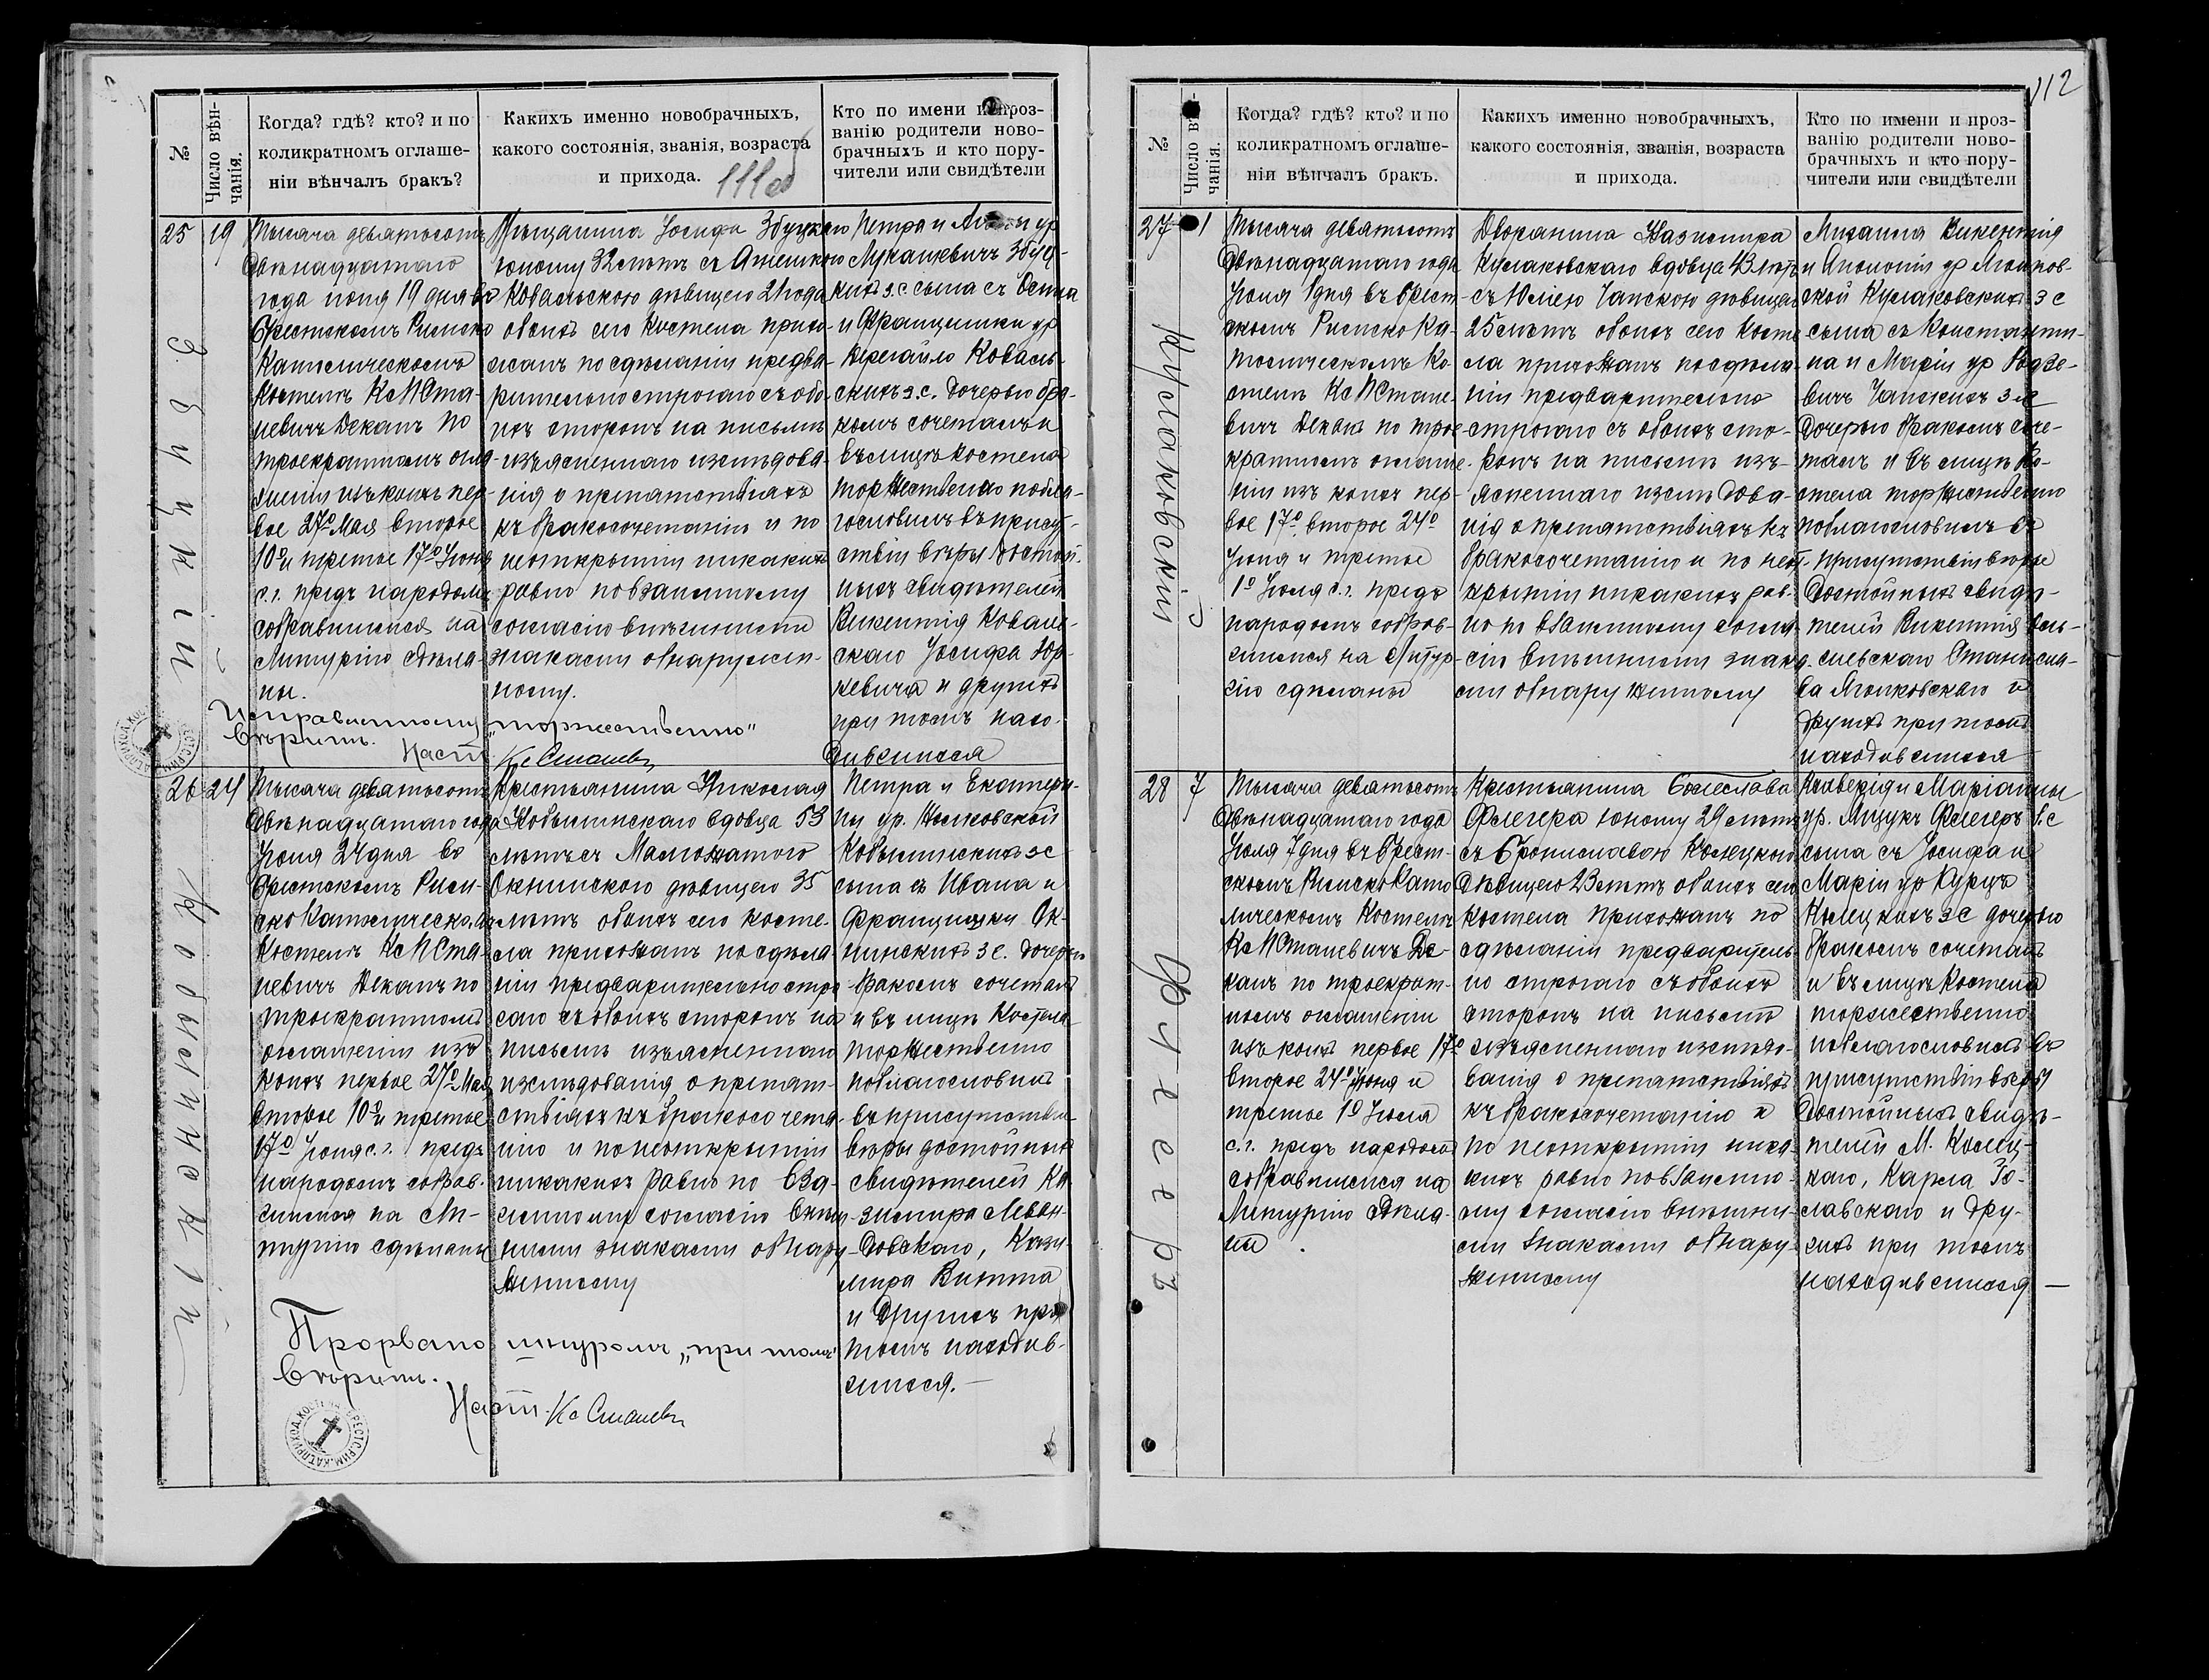 №
Число вѣн-
чанія.
Когда? гдѣ? кто? и по
коликратномъ оглаше-
ніи вѣнчалъ бракъ?
Какихъ именно новобрачныхъ,
какого состоянія, званія, возраста
и прихода.
Кто по имени и проз-
ванію родители ново-
брачныхъ и кто пору-
чители или свидѣтели
111об
25
19
Збуцкій
Тысяча девятьсотъ
двѣнадцатаго
года іюня 19 дня въ
Брестскомъ Римско
Католическомъ
Костелѣ Кс И Ста-
невичъ Деканъ по
троекратномъ огла-
шеніи изъ коихъ пер-
вое 27º Мая второе
10º и третье 17º Іюня
с.г. предъ народомъ
собравшимся на
Литургію сдѣла-
ны.
Мѣщанина Іосифа Збуцкаго
юношу 32 лѣтъ съ
Ковальскою дѣвицею 21 года
обоихъ сего костела прихо-
жанъ по сдѣланіи предва-
рительно строгаго съ обо-
ихъ сторонъ на письмѣ
изъясненнаго изслѣдова-
нія о препятствіяхъ
къ бракосочетанію и по
неоткрытіи никакихъ
равно по взаимному
согласію внѣшними
знаками обнаружен-
ному.
Петра и ур
Лукашевичъ Збуц-
кихъ з.с. сына съ Осипа
и Францишки ур
Кергайло Коваль-
скихъ з.с. дочерью бра-
комъ сочеталъ и
въ лицѣ костела
торжествено побла-
гословилъ въ присут-
ствіи вѣры достой-
ныхъ свидѣтелей
Викентія Коваль-
скаго Іосифа Юр-
кевича и другихъ
при томъ нахо-
дившихся
Исправленному „торжественно"
вѣрить. Наст. Кс Станевичъ
26
24
Кобылинскій
Тысяча девятьсотъ
двѣнадцатаго года
Іюня 24 дня въ
Брестскомъ Рим-
ско Католическомъ
Костелѣ Кс И Ста-
невичъ Деканъ по
троекратномъ
оглашеніи изъ
коихъ первое 27º Мая
второе 10º и третье
17º Іюня с.г. предъ
народомъ собрав-
шимся на Ли-
тургію сдѣланы
Крестьянина Николая
Кобылинскаго вдовца 53
лѣтъ съ Малгожатою
Окнинскою дѣвицею 35
лѣтъ обоихъ сего косте-
ла прихожанъ по сдѣла-
ніи предварительно стро-
гаго съ обоихъ сторонъ на
письмѣ изъясненнаго
изслѣдованія о препят-
ствіяхъ къ бракосочета-
нію и по неоткрытіи
никакихъ равно по вза-
имному согласію внѣш-
ними знаками обнару-
женному
Петра и Екатери-
ны ур. Нолковской
Кобылинскихъ зс
сына съ Ивана и
Францишки Ок-
нинскихъ зс. дочерью
бракомъ сочеталъ
и въ лицѣ Костела
торжественно
поблагословилъ
въ присутствіи
вѣры достойныхъ
свидѣтелей Ка-
зимира Леван-
довскаго, Кази-
мира Витта
и другихъ при
томъ находив-
шихся.—
Прорвано шнуромъ „при томъ"
вѣрить.
Наст. Кс Станевичъ
БРЕСТС. РИМ. КАТ. ПРИХОД. КОСТ
112
№
Число вѣ-
чанія.
Когда? гдѣ? кто? и по
коликратномъ оглаше-
ніи вѣнчалъ бракъ.
Какихъ именно новобрачныхъ,
какого состоянія, званія, возраста
и прихода.
Кто по имени и проз-
ванію родители ново-
брачныхъ и кто пору-
чители или свидѣтели
27
1
Куслаковскій
Тысяча девятьсотъ
двѣнадцатаго года
Іюля 1 дня въ Брест-
скомъ Римско Ка-
толическомъ Ко-
стелѣ Кс И Стане-
вичъ Деканъ по трое-
кратномъ оглаше-
ніи изъ коихъ пер-
вое 17º второе 24º
Іюня и третье
1º Іюля с.г. предъ
народомъ собрав-
шимся на Литур-
гію сдѣланы
Дворянина Казимира
Куслаковскаго вдовца 43 лѣтъ
съ Юліею Чапскою дѣвицею
25 лѣтъ обоихъ сего косте-
ла прихожанъ по сдѣла-
ніи предварительно
строгаго съ обоихъ сто-
ронъ на письмѣ изъ-
ясненнаго изслѣдова-
нія о препятствіяхъ къ
бракосочетанію и по неот-
крытіи никакихъ рав-
но по взаимному согла-
сію внѣшними знака-
ми обнаруженному
Михаила Викентія
и Аполоніи ур
Куслаковскихъ з с
сына съ Константи-
на и Маріи ур
Чапскихъ з с
дочерью бракомъ соче-
талъ и въ лицѣ Ко-
стела торжественно
поблагословилъ въ
присутствіи вѣры
достойныхъ свидѣ-
телей Викентія
Станисла-
ва и
другихъ при томъ
находившихся
28
7
Флегеръ
Тысяча девятьсотъ
двѣнадцатаго года
Іюля 7 дня въ Брест-
скомъ Римско Като
лическомъ Костелѣ
Кс И Станевичъ Де-
канъ по троекрат-
номъ оглашеніи
изъ коихъ первое 17º
второе 24º Іюня и
третье 1º Іюля
с.г. предъ народомъ
собравшимся на
Литургію сдѣла-
ны.
Крестьянина Болеслава
Флегера юношу 29 лѣтъ
съ Брониславою Колецкою
дѣвицею 23 лѣтъ обоихъ сего
костела прихожанъ по
сдѣланіи предваритель-
но строгаго съ обоихъ
сторонъ на письмѣ
изъясненнаго изслѣдо-
ванія о препятствіяхъ
къ бракосочетанію и
по неоткрытіи ника-
кихъ равно по взаимно-
му согласію внѣшни-
ми знаками обнару-
женному
Ксаверія и Маріанны
ур. Мицукъ Флегеръ з.с
сына съ Іосифа и
Маріи ур Курцъ
Колецкихъ з с дочерью
бракомъ сочеталъ
и въ лицѣ Костела
торжественно
поблагословилъ въ
присутствіи вѣры
достойныхъ свидѣ-
телей М. Колец-
каго, Карла Го-
славскаго и дру-
гихъ при томъ
находившихся —